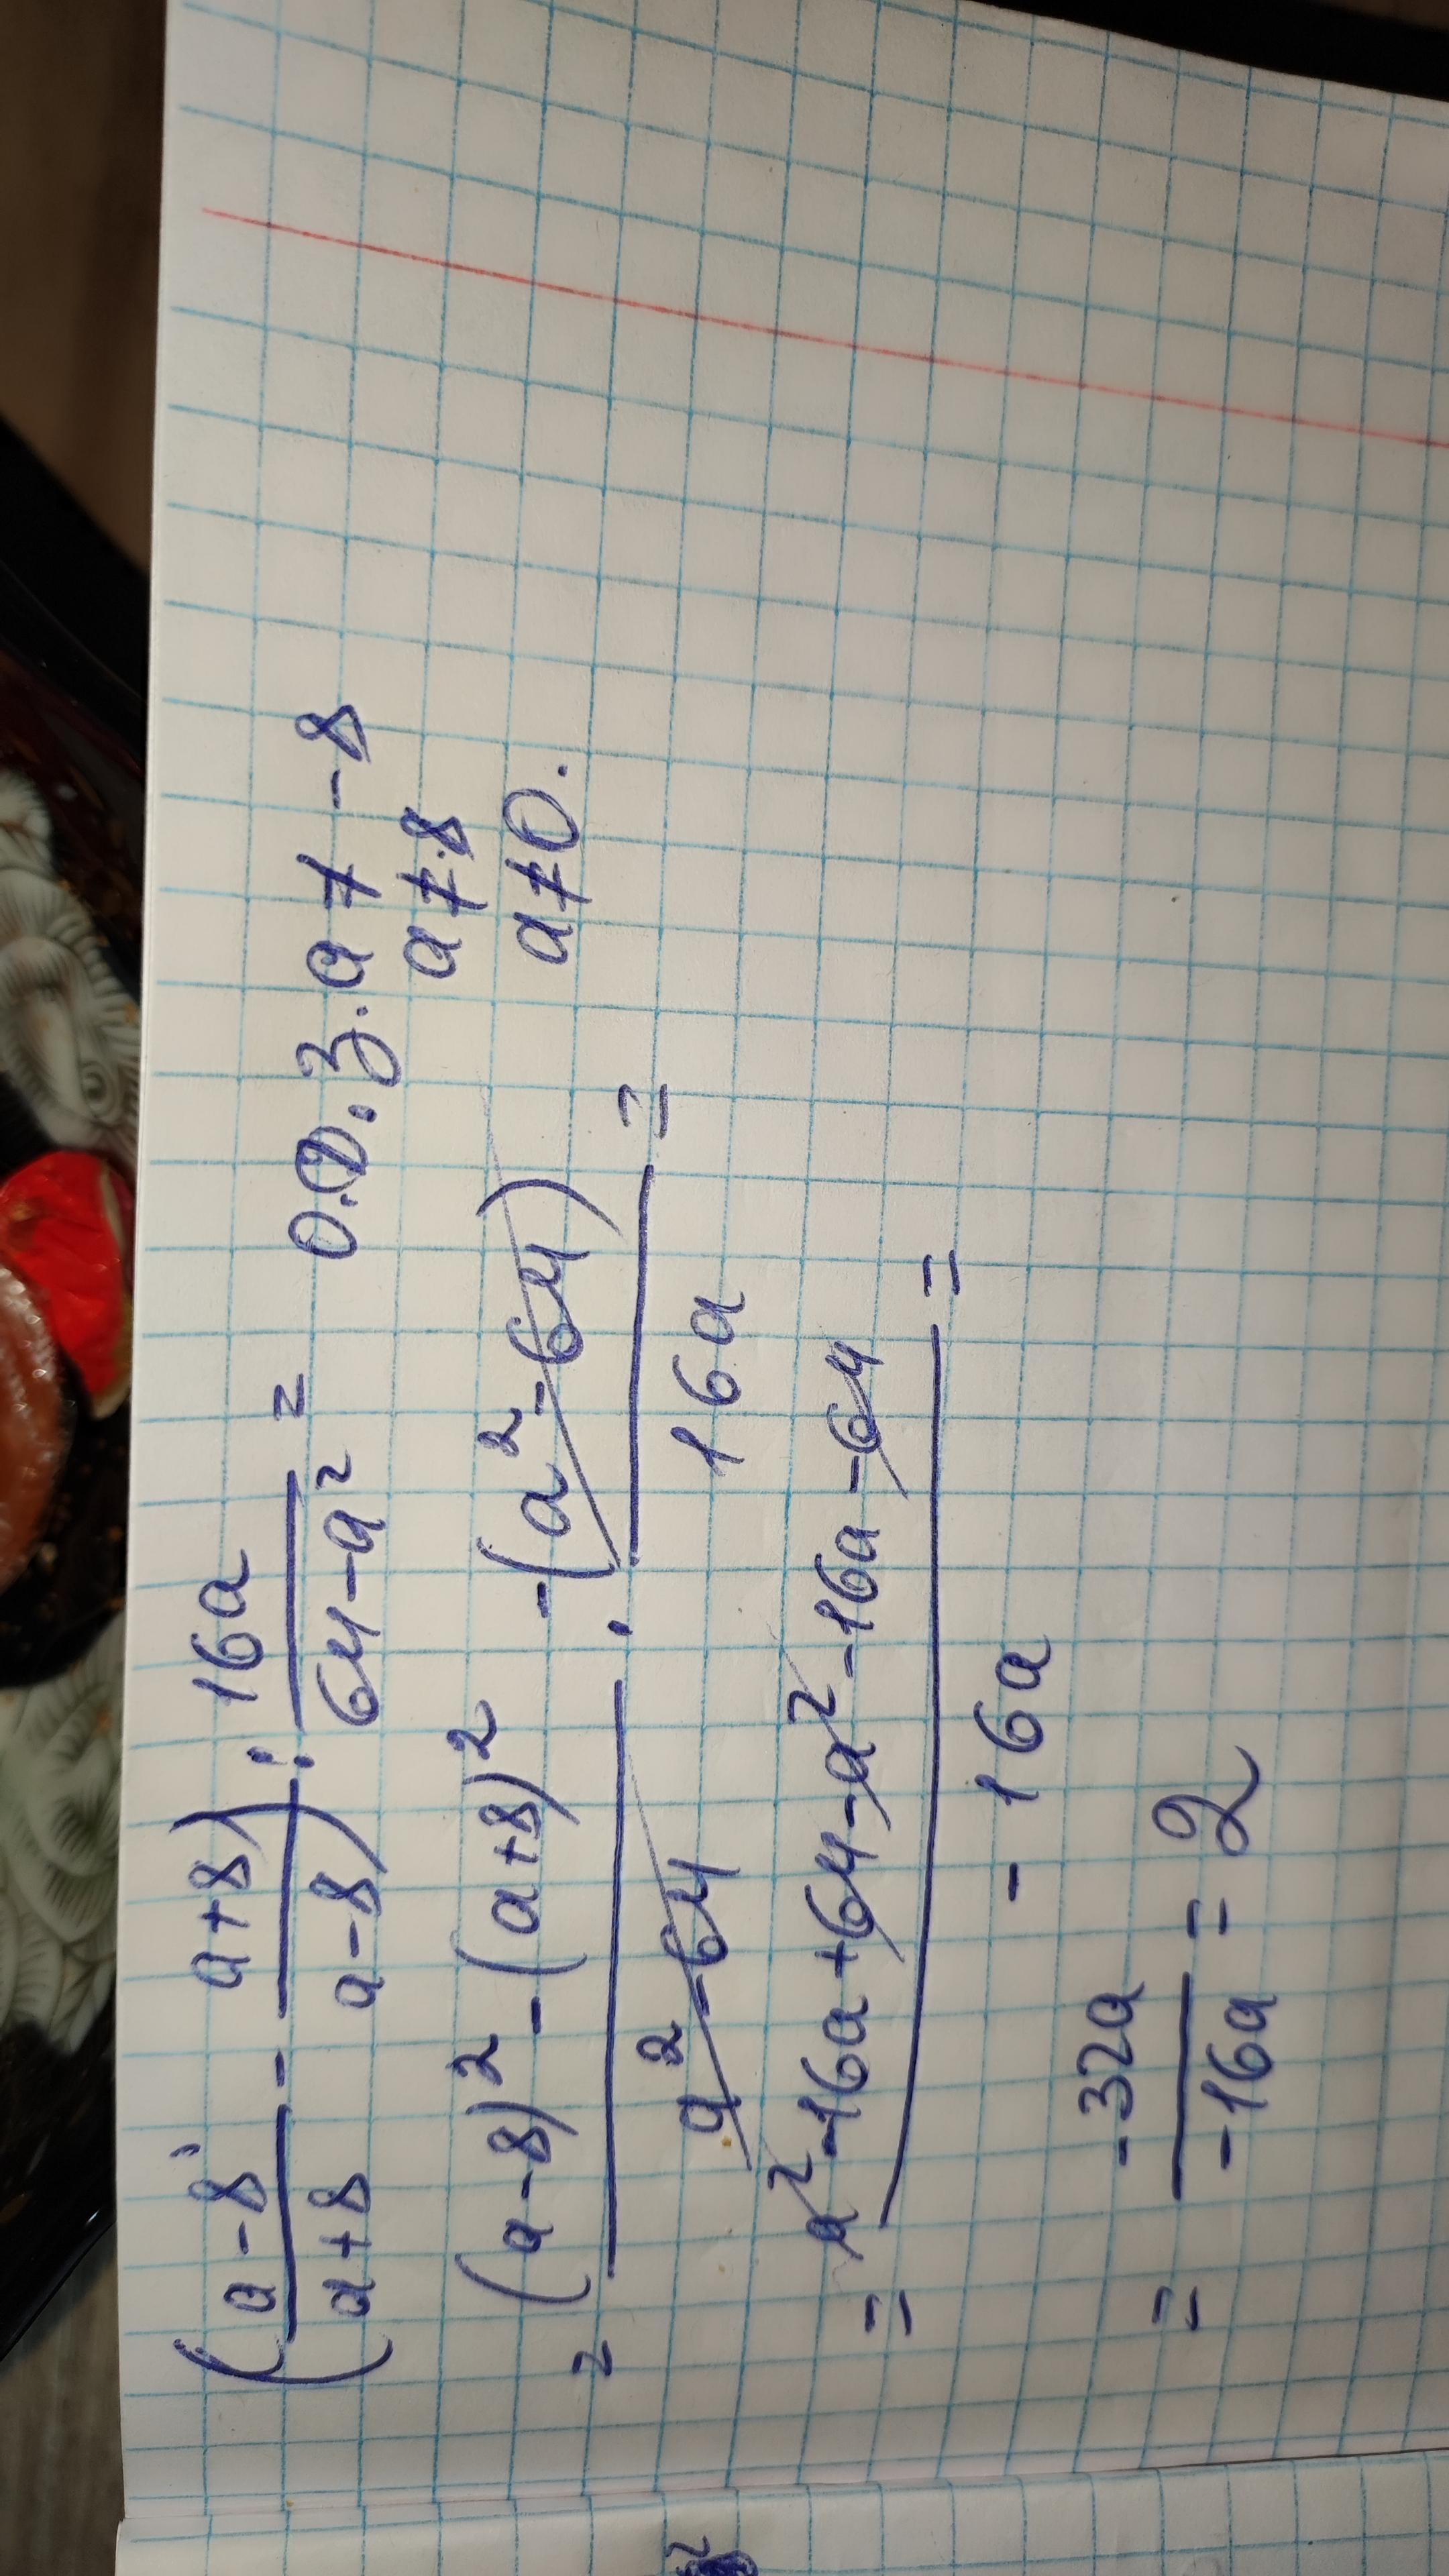 (a-8/a+8 - a+8/a-8) : 16a/64-a² =
О.Д.З. a ≠ -8
a ≠ 8
a ≠ 0.
= (a-8)² - (a+8)² / a²-64 · -(a²-64) / 16a =
= a²-16a+64-a²-16a-64 / -16a =
= -32a / -16a = 2